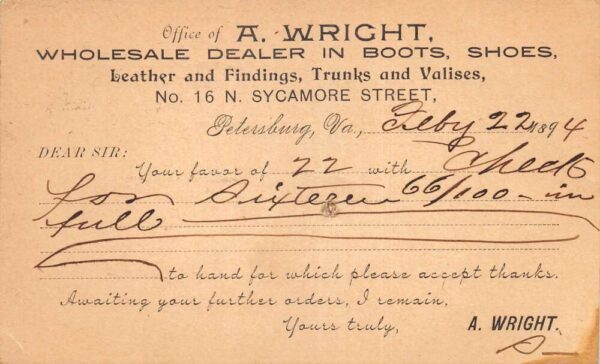 Office of A. WRIGHT,
WHOLESALE DEALER IN BOOTS, SHOES,
Leather and Findings, Trunks and Valises,
No. 16 N. SYCAMORE STREET,
Petersburg, Va., Feby 22 1894
DEAR SIR:
Your favor of 22 with Check
for Sixteen 66/100 - in
full
to hand for which please accept thanks.
Awaiting your further orders, I remain,
Yours truly, A. WRIGHT.
S